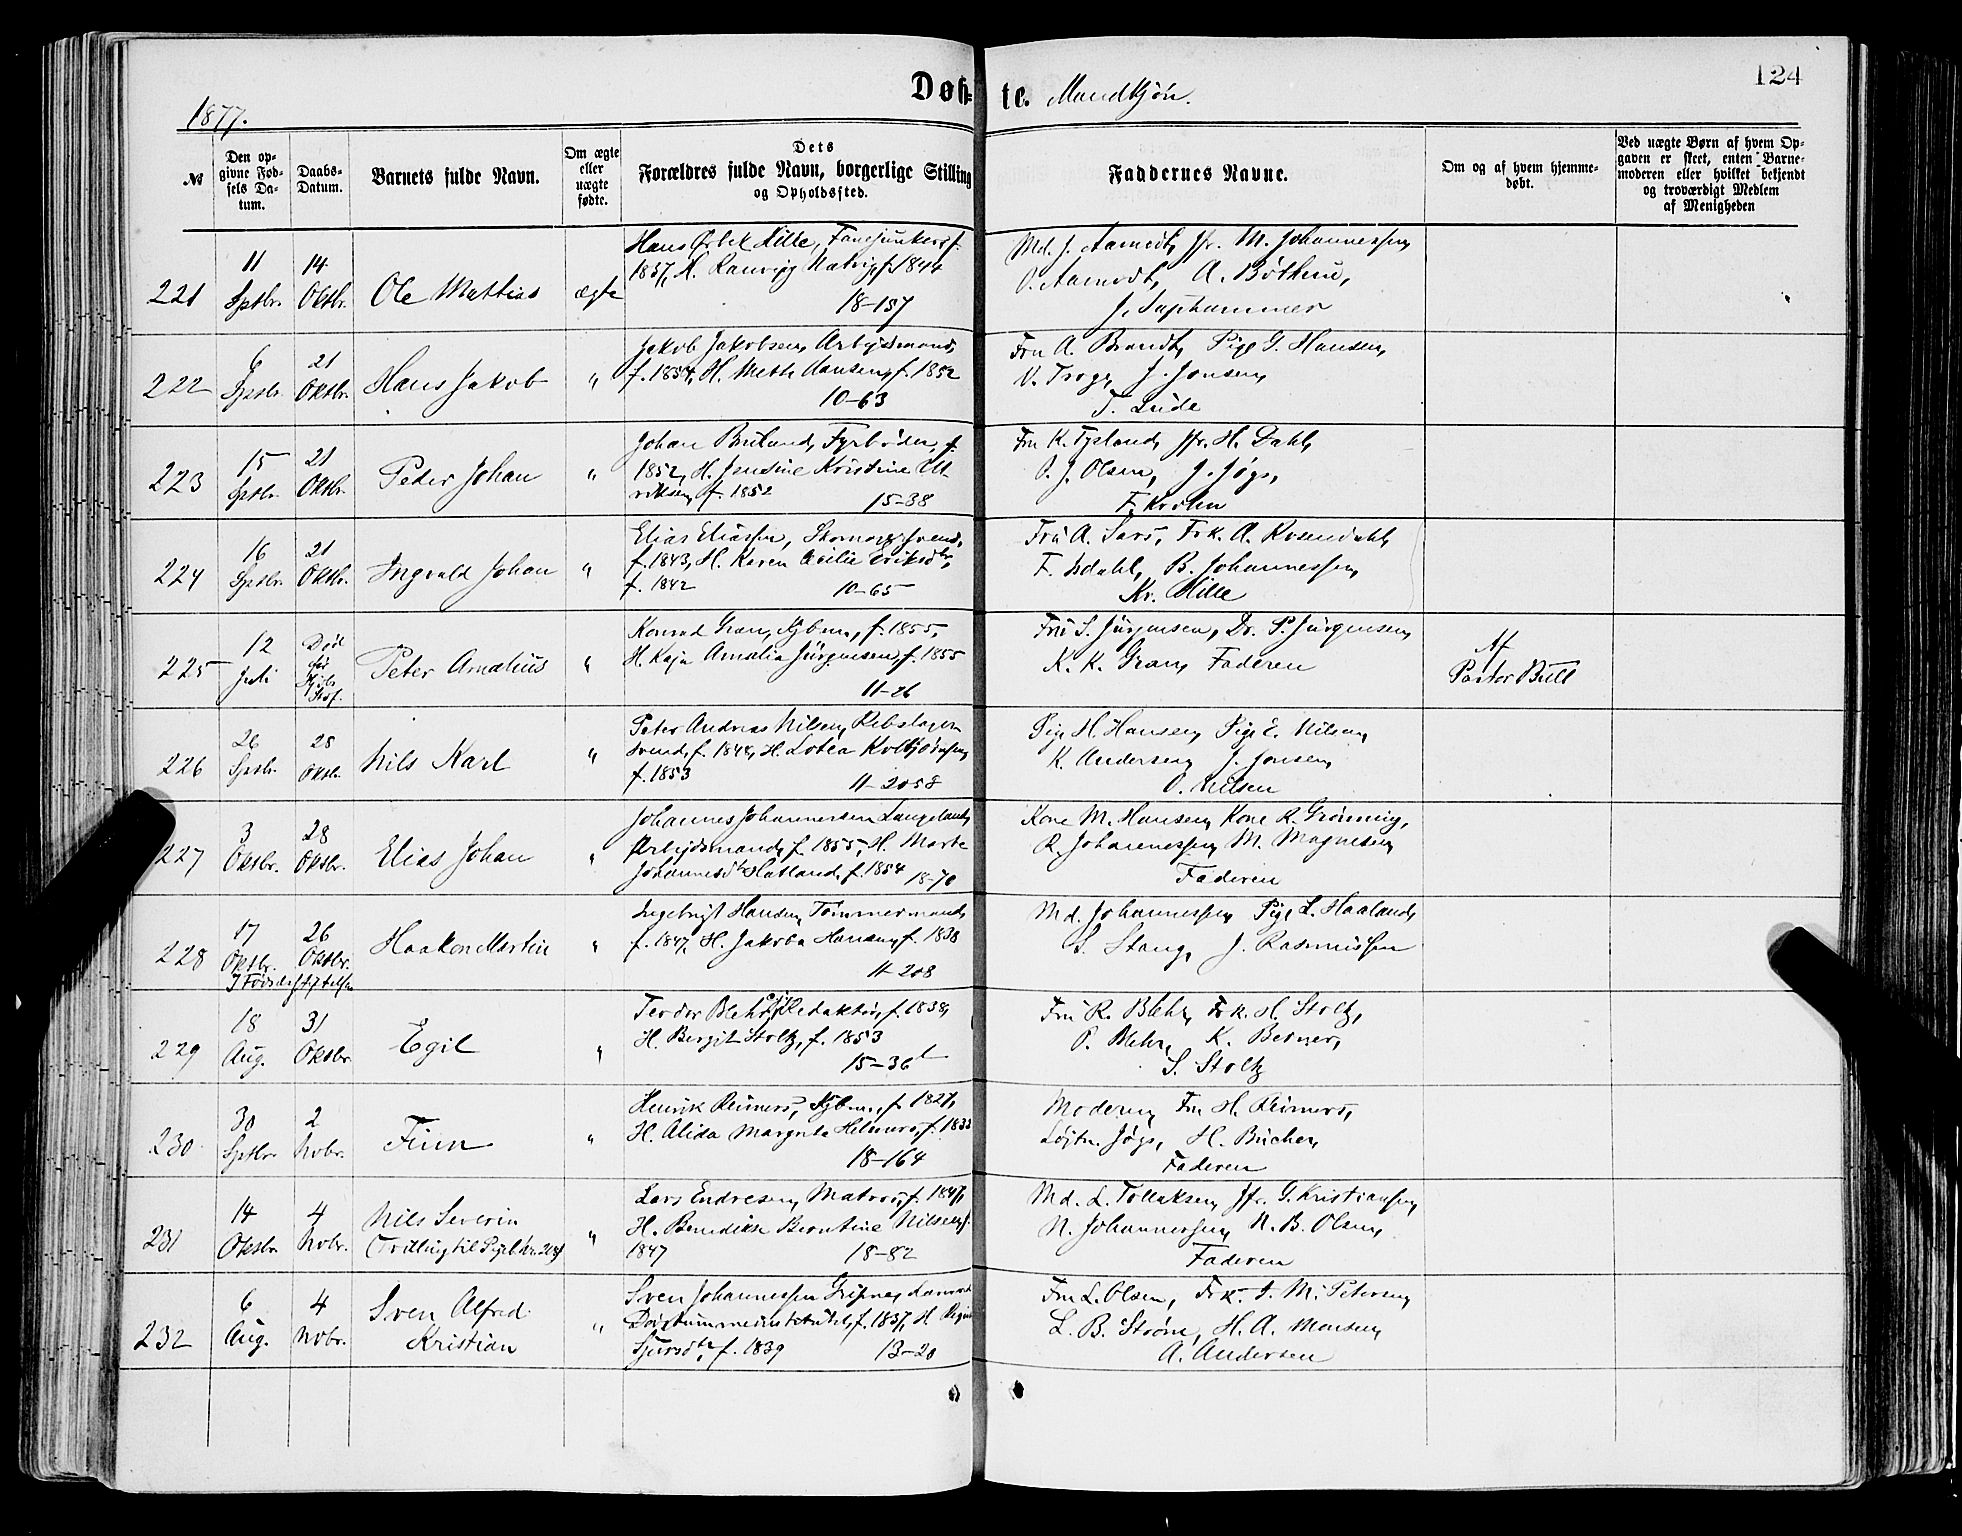 124
Døb- te. Mandkjøn.
1877.
№
Den op-
givne Fød-
sels Da-
tum.
Daabs-
Datum.
Barnets fulde Navn.
Om ægte
eller
uægte
fødte.
Dets
Forældres fulde Navn, borgerlige Stilling
og Opholdssted.
Faddernes Navne.
Om og af hvem hjemme-
døbt.
Ved uægte Børn af hvem Op-
gaven er skeet, enten Barne-
moderen eller hvilket bekjendt
og troværdigt Medlem
af Menigheden
221
11
Sptbr.
14
Oktbr.
Ole Mattias
ægte
Hans Ørbek Lille, Fanejunker, f.
1837, H. Ranveig Natvig, f. 1844
18-157
Md. J. Aamodt, Jfr. M. Johannessen,
O. Aamodt, A. Bøthun,
J.
222
6
Sptbr.
21
Oktbr.
Hans Jakob
"
Jakob Jakobsen, Arbejdsmand,
f. 1854, H. Mette Hansen, f. 1852
10-63
Fru A. Brandt, Pige G. Hansen,
V. Troye, J. Jonsen,
T. Lude
223
15
Sptbr.
21
Oktbr.
Peder Johan
"
Johan Bruland, Fyrbøder, f.
1852, H. Jensine Kristine Ul-
riksen, f. 1852
15-38
Fru K. Tysland, Jfr. H. Dahl,
O. J. Olsen, J. Jøgs,
F. Krohn
224
16
Sptbr.
21
Oktbr.
Ingvald Johan
"
Elias Eliassen, Skomagersvend,
f. 1843, H. Karen Cecilie Eriksdtr,
f. 1842
10-65
Fru A. Sars, Frk. A. Rosendahl,
F. Isdahl, B. Johannessen,
Kr. Hille
225
12
Juli
Død
før
Peter Amalius
"
Konrad Gran, Kjbm., f. 1855,
H. Kaja Amalia Jürgensen, f. 1855
11-26
Fru S. Jürgensen, Dr. P. Jürgensen,
K. K. Gran, Faderen
Af
Pastor Bull
226
26
Sptbr.
28
Oktbr.
Nils Karl
"
Peter Andreas Nilsen, Rebslager-
svend, f. 1848, H. Lotea Kolbjørnsen,
f. 1853
11-205 8
Pige H. Hansen, Pige E. Nilsen,
K. Andersen, J. Jonsen,
O. Nilsen
227
3
Oktbr.
28
Oktbr.
Elias Johan
"
Johannes Johannessen Langeland,
Arbejdsmand, f. 1855, H. Marte
Johannesdtr Hatland, f. 1854
18-70
Kone M. Hansen, Kone R. Grønning,
R. Johannessen, M. Magnesen,
Faderen
228
17
Oktbr.
26
Oktbr.
I Fødselsstiftelsen
Haakon Martin
"
Ingebrigt Hansen, Tømmermand,
f. 1847, H. Jakoba Hansen, f. 1838
11-208
Md. Johannessen, Pige L. Haaland,
S. Stang, J. Rasmussen
229
18
Aug.
31
Oktbr.
Egil
"
Teodor Blehr, Redaktør, f. 1838,
H. Bergit Stoltz, f. 1853
15-36
Fru R. Blehr, Frk. H. Stoltz,
O. Blehr, K. Berner,
S. Stoltz
230
30
Sptbr.
2
Nvbr.
Finn
"
Henrik Reimers, Kjbm., f. 1827,
H. Alida Margreta Helmers, f. 1833
18-164
Moderen, Fru H. Reimers,
Løjtn. Jøgs, H. Bücher,
Faderen
231
14
Oktbr.
4
Nvbr.
Nils Severin
(Tvilling til Pigek. Nr. 208)
"
Lars Endresen, Matros, f. 1847,
H. Benedikte Berntine Nilsen, f.
1847
18-82
Md. L. Tollaksen, Jfr. G. Kristiansen,
N. Johannessen, N. B. Olsen,
Faderen
232
6
Aug.
4
Nvbr.
Sven Alfred
Kristian
"
Sven Johannessen Gripne,
Døvstummeinstitutet, f. 1837, H.
Sjursdtr, f. 1839
13-20
Fru L. Olsen, Frk. J. M. Petersen,
L. B. Strøm, H. A. Monsen,
A. Andersen